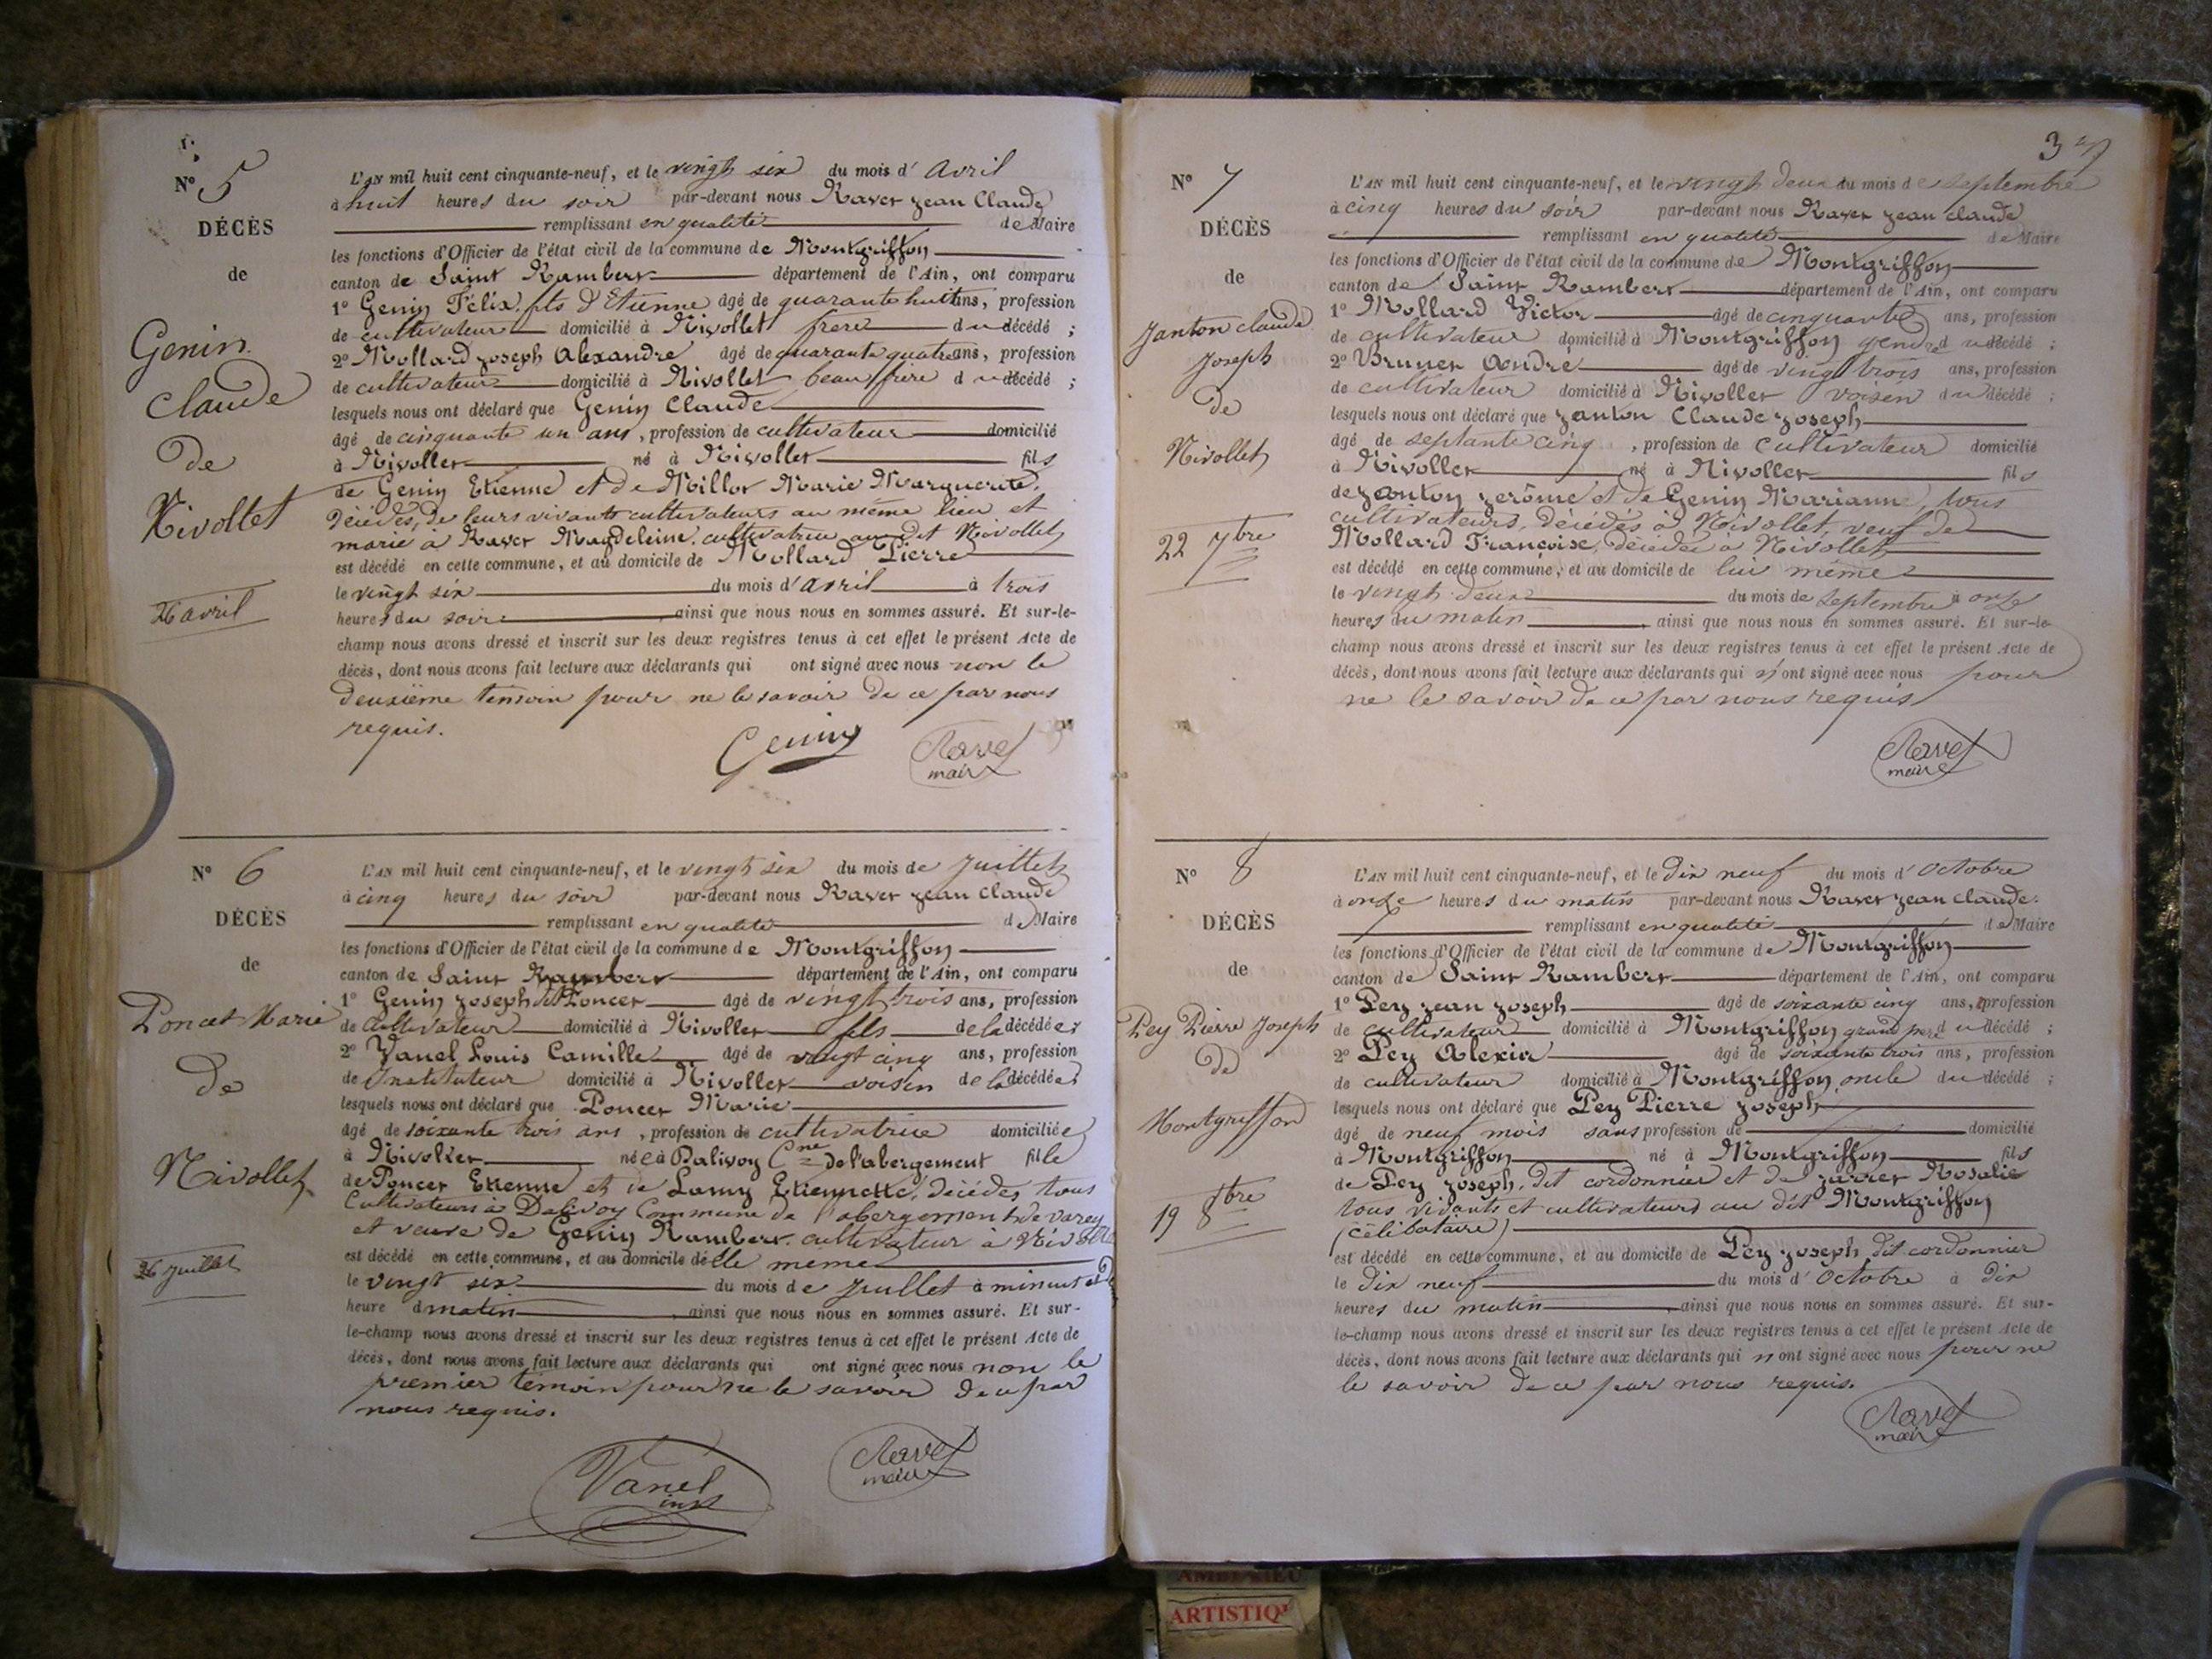 N° 5
DÉCÈS
de
Genin
Claude
de
Nivollet
26 avril
L'AN mil huit cent cinquante-neuf, et le vingt six du mois d'avril
à huit heures du soir par-devant nous Ravet Jean Claude
remplissant en qualité de Maire
les fonctions d'Officier de l'état civil de la commune de Montgriffon
canton de Saint Rambert département de l'Ain, ont comparu
1° Genin Félix fils d'Etienne âgé de quarante huit ans, profession
de cultivateur domicilié à Nivollet frère du décédé ;
2° Mollard Joseph Alexandre âgé de quarante quatre ans, profession
de cultivateur domicilié à Nivollet beau frère du décédé ;
lesquels nous ont déclaré que Genin Claude
âgé de cinquante un ans, profession de cultivateur domicilié
à Nivollet né à Nivollet fils
de Genin Etienne et de Millot Marie Marguerite,
décédés, de leurs vivants cultivateurs au même lieu et
marié à Ravet Magdeleine, cultivatrice au dit Nivollet
est décédé en cette commune, et au domicile de Mollard Pierre
le vingt six du mois d'avril à trois
heures du soir ainsi que nous nous en sommes assuré. Et sur-le-
champ nous avons dressé et inscrit sur les deux registres tenus à cet effet le présent Acte de
décès, dont nous avons fait lecture aux déclarants qui ont signé avec nous non le
deuxième témoin pour ne le savoir de ce par nous
requis.
Genin Ravet
maire
N° 6
DÉCÈS
de
Poncet Marie
de
Nivollet
26 Juillet
L'AN mil huit cent cinquante-neuf, et le vingt six du mois de Juillet
à cinq heures du soir par-devant nous Ravet Jean Claude
remplissant en qualité de Maire
les fonctions d'Officier de l'état civil de la commune de Montgriffon
canton de Saint Rambert département de l'Ain, ont comparu
1° Genin Joseph dit Poncet âgé de vingt trois ans, profession
de cultivateur domicilié à Nivollet fils de la décédée ;
2° Vanel Louis Camille âgé de vingt cinq ans, profession
de Instituteur domicilié à Nivollet voisin de la décédée
lesquels nous ont déclaré que Poncet Marie
âgé de soixante trois ans, profession de cultivatrice domiciliée
à Nivollet née à Dalivoy Cne de l'abergement fille
de Poncet Etienne et de Lamy Etiennette, décédés tous
Cultivateurs à Dalivoy Commune de l'abergement de varey
et veuve de Genin Rambert cultivateur à Nivollet
est décédé en cette commune, et au domicile delle même
le vingt six du mois de Juillet à minuit et
heure d matin ainsi que nous nous en sommes assuré. Et sur-
le-champ nous avons dressé et inscrit sur les deux registres tenus à cet effet le présent Acte de
décès, dont nous avons fait lecture aux déclarants qui ont signé avec nous non le
premier témoin pour ne le savoir de ce par
nous requis.
Vanel Ravet
maire
37
N° 7
DÉCÈS
de
Janton Claude
Joseph
de
Nivollet
22 7bre
L'AN mil huit cent cinquante-neuf, et le vingt deux du mois de septembre
à cinq heures du soir par-devant nous Ravet Jean Claude
remplissant en qualité de Maire
les fonctions d'Officier de l'état civil de la commune de Montgriffon
canton de Saint Rambert département de l'Ain, ont comparu
1° Mollard Victor âgé de cinquante ans, profession
de cultivateur domicilié à Montgriffon gendre du décédé ;
2° Brunet André âgé de vingt trois ans, profession
de cultivateur domicilié à Nivollet voisin du décédé ;
lesquels nous ont déclaré que Janton Claude Joseph
âgé de septante cinq, profession de cultivateur domicilié
à Nivollet né à Nivollet fils
de Janton Jerôme et de Genin Marianne, tous
cultivateurs, décédés à Nivollet, veuf de
Mollard Françoise, décédée à Nivollet
est décédé en cette commune, et au domicile de lui même
le vingt deux du mois de septembre à onze
heures du matin ainsi que nous nous en sommes assuré. Et sur-le-
champ nous avons dressé et inscrit sur les deux registres tenus à cet effet le présent Acte de
décès, dont nous avons fait lecture aux déclarants qui n'ont signé avec nous pour
ne le savoir de ce par nous requis
Ravet
maire
N° 8
DÉCÈS
de
Pey Pierre Joseph
de
Montgriffon
19 8bre
L'AN mil huit cent cinquante-neuf, et le dix neuf du mois d'Octobre
à onze heures du matin par-devant nous Ravet Jean Claude.
remplissant en qualité de Maire
les fonctions d'Officier de l'état civil de la commune de Montgriffon
canton de Saint Rambert département de l'Ain, ont comparu
1° Pey Jean Joseph âgé de soixante cinq ans, profession
de cultivateur domicilié à Montgriffon grand père du décédé ;
2° Pey Alexis âgé de soixante trois ans, profession
de cultivateur domicilié à Montgriffon oncle du décédé ;
lesquels nous ont déclaré que Pey Pierre Joseph
âgé de neuf mois sans profession de domicilié
à Montgriffon né à Montgriffon fils
de Pey Joseph, dit cordonnier et de Rosalie
tous vivants et cultivateurs au dit Montgriffon
(célibataire)
est décédé en cette commune, et au domicile de Pey Joseph, dit cordonnier
le dix neuf du mois d'Octobre à dix
heures du matin ainsi que nous nous en sommes assuré. Et sur-
le-champ nous avons dressé et inscrit sur les deux registres tenus à cet effet le présent Acte de
décès, dont nous avons fait lecture aux déclarants qui n'ont signé avec nous pour ne
le savoir de ce par nous requis.
Ravet
maire
ARTISTIQU